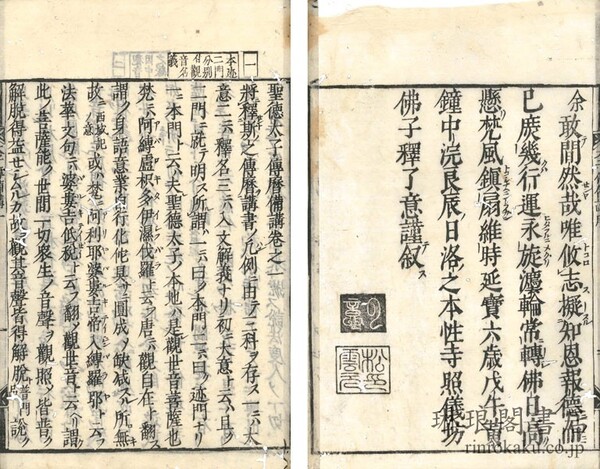 余敢間然哉唯攸志擬知恩報德而
已庶幾行運永旋灋輪常轉佛日高
懸梵風鎮扇維時延寶六歲戊午黃
鐘中浣良辰日洛之本性寺照儀坊
佛子釋了意謹敘
一
本迹
二門
分別
付觀
音名
義
聖德太子傳曆備講卷之一
將釋斯之傳曆講書ノ凡例ニ由テ三科ヲ存ス一ニハ大
意二ニハ釋名三ニハ入文解義ナリ初ニ大意ト云ハ且ク
二門ニ就テ明ス所謂一ニ曰ク本門二ニ曰ク迹門ナリ
一ニ本門ト云ハ夫聖德太子ノ本地ハ是觀世音菩薩也
梵ニハ阿縛盧枳多伊濕伐羅ト云フ唐ニハ觀自在ト翻ス
謂ク身語意業自行化他見ニ圓成シ缺減スル所無
故ニ西域記ノ意或ハ梵ニ阿利耶婆婁吉帝入縛羅耶ト云フ
法華文句ニハ婆婁吉低稅ト云フ翻シテ觀世音ト云フ謂ク
此ノ菩薩能ク世間一切衆生ノ音聲ヲ觀照シ皆普ク
解脫ヲ得セシムルカ故ニ觀其音聲皆得解脫
琳琅閣書
rinrokaku.co.jp